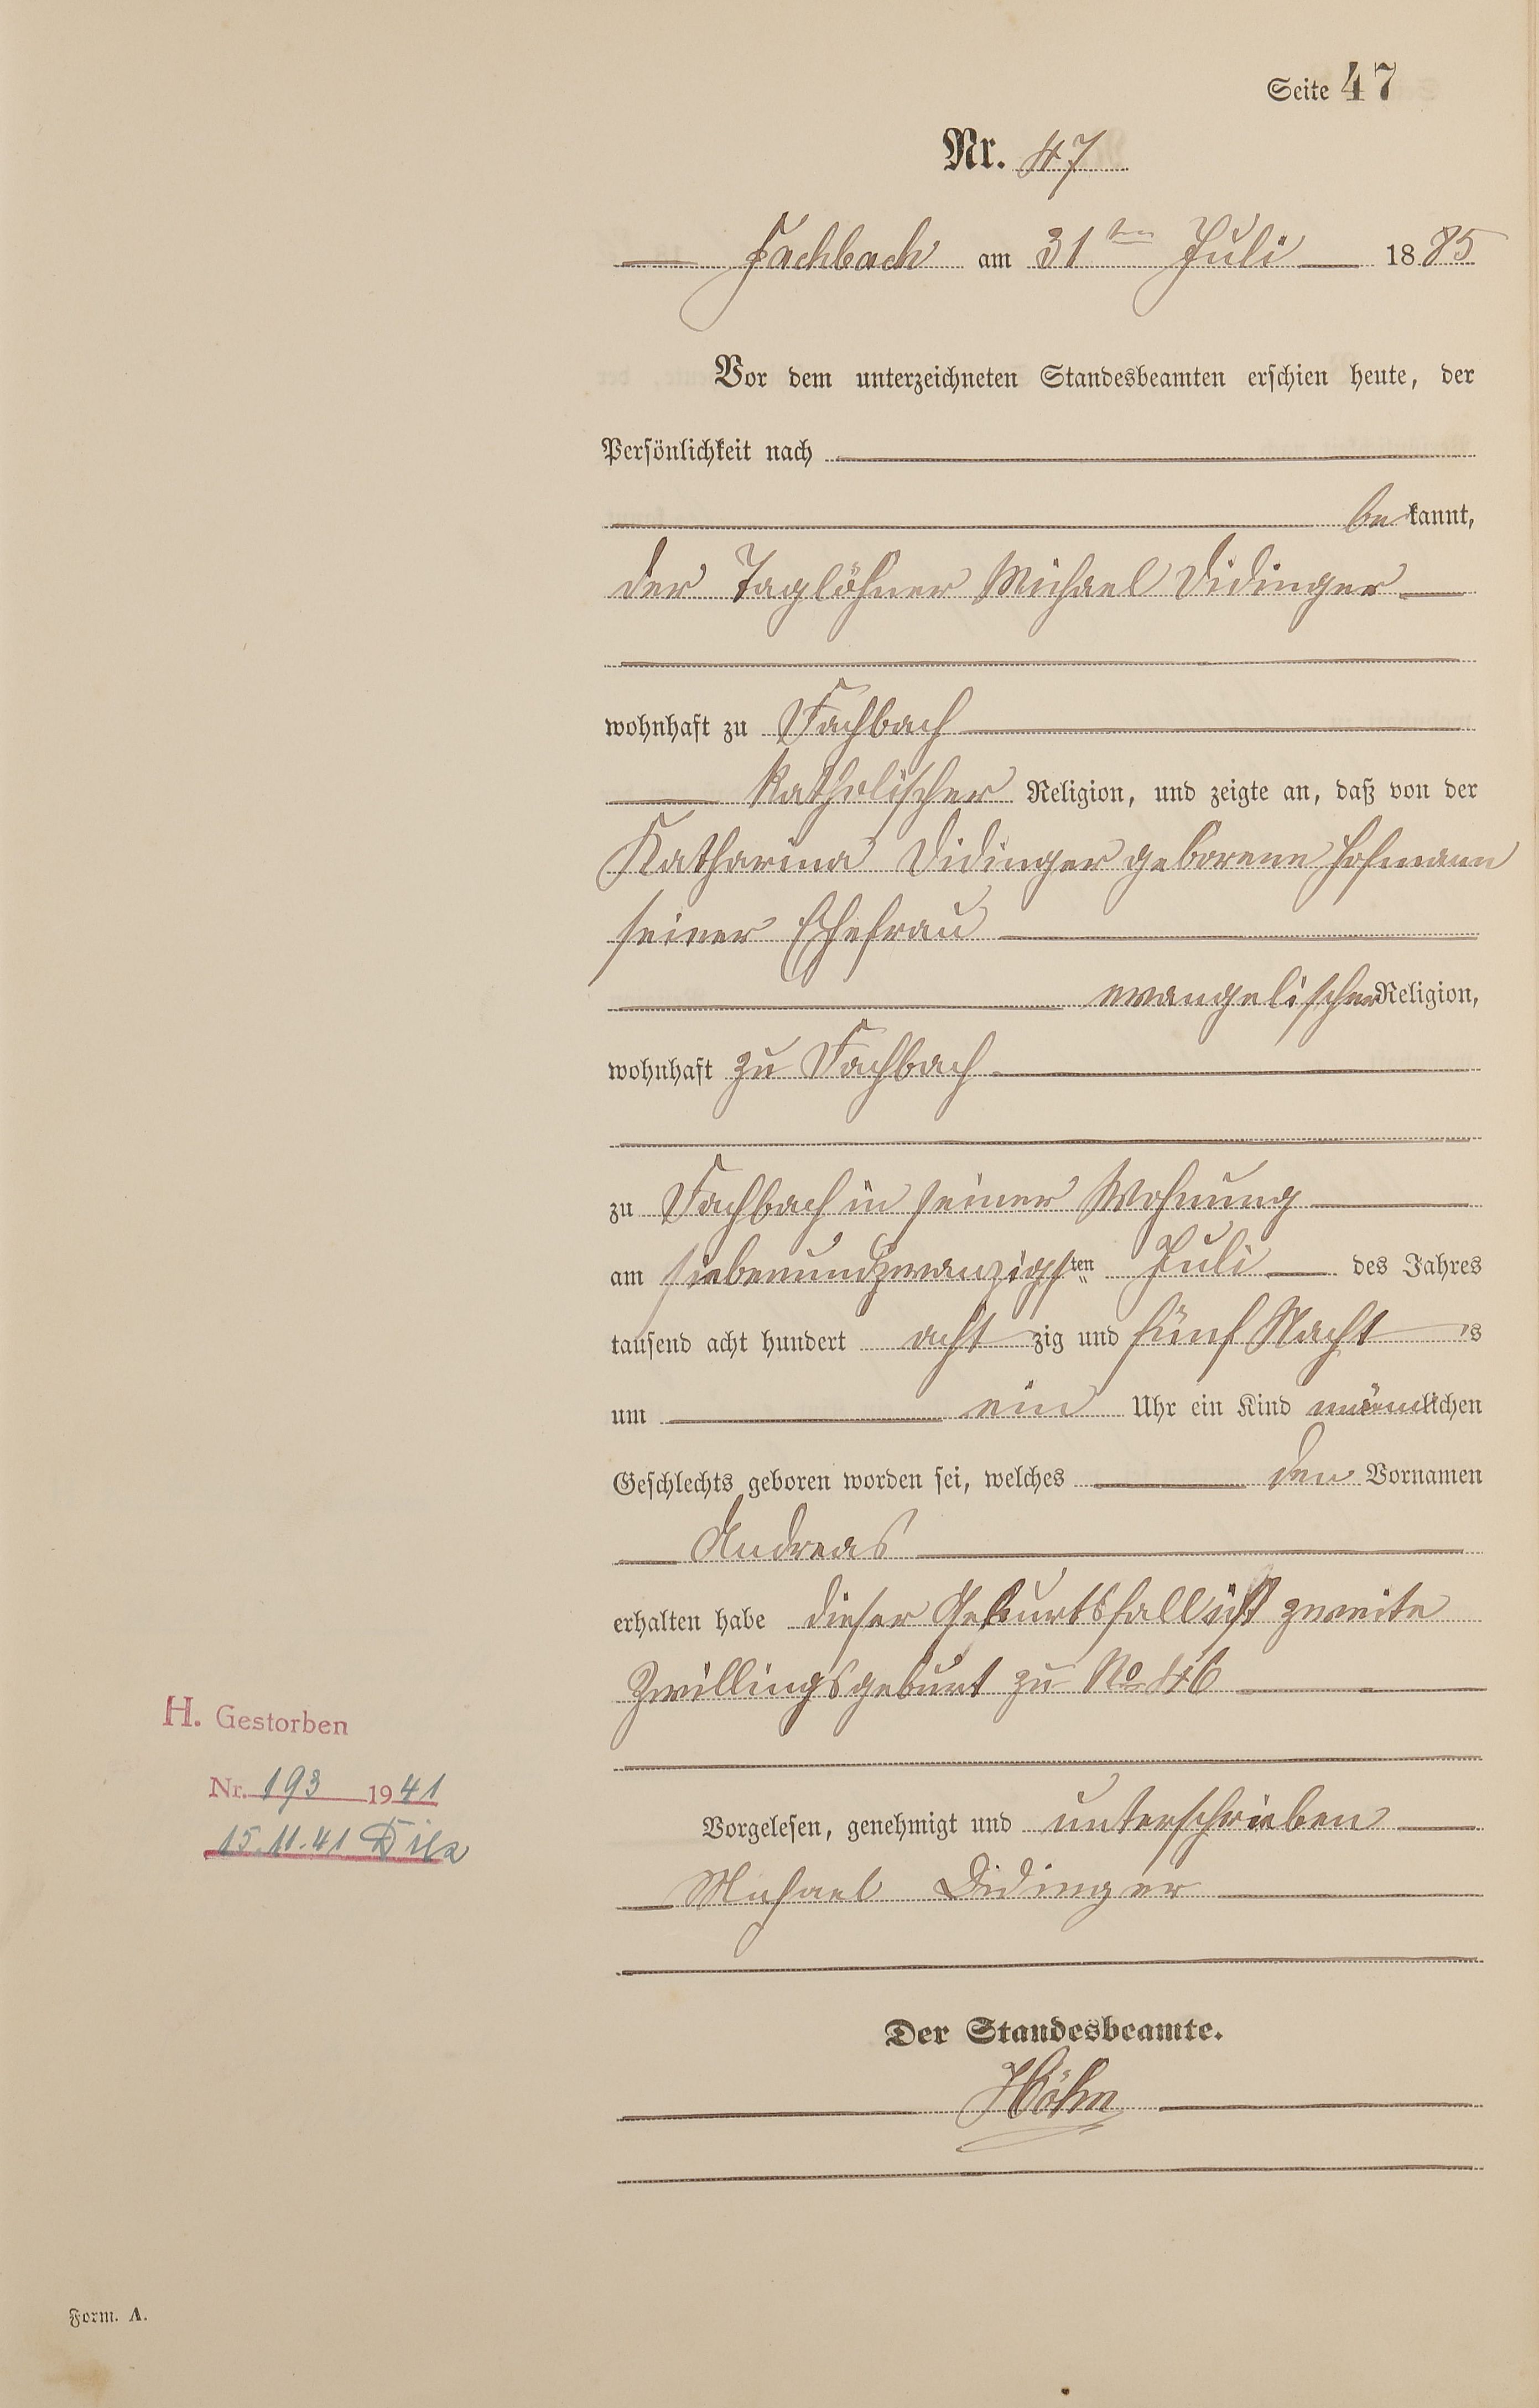 Seite 47
Nr. 47
Fachbach am 31ten Juli 1885
Vor dem unterzeichneten Standesbeamten erschien heute, der
Persönlichkeit nach
bekannt,
der Taglöhner Michael Didinger
wohnhaft zu Fachbach
katholischer Religion, und zeigte an, daß von der
Katharina Didinger geborene Hofmann
seiner Ehefrau
evangelischer Religion,
wohnhaft zu Fachbach
zu Fachbach in seiner Wohnung
am siebenundzwanzigsten Juli des Jahres
tausend acht hundert achtzig und fünf Nachts
um ein Uhr ein Kind männlichen
Geschlechts geboren worden sei, welches den Vornamen
Andreas
erhalten habe dieser Geburtsfall ist zweite
Zwillingsgeburt zu No 46
H. Gestorben
Nr. 193 1941
15.11.41
Vorgelesen, genehmigt und unterschrieben
Michael Didinger
Der Standesbeamte.
Höhn
Form. A.